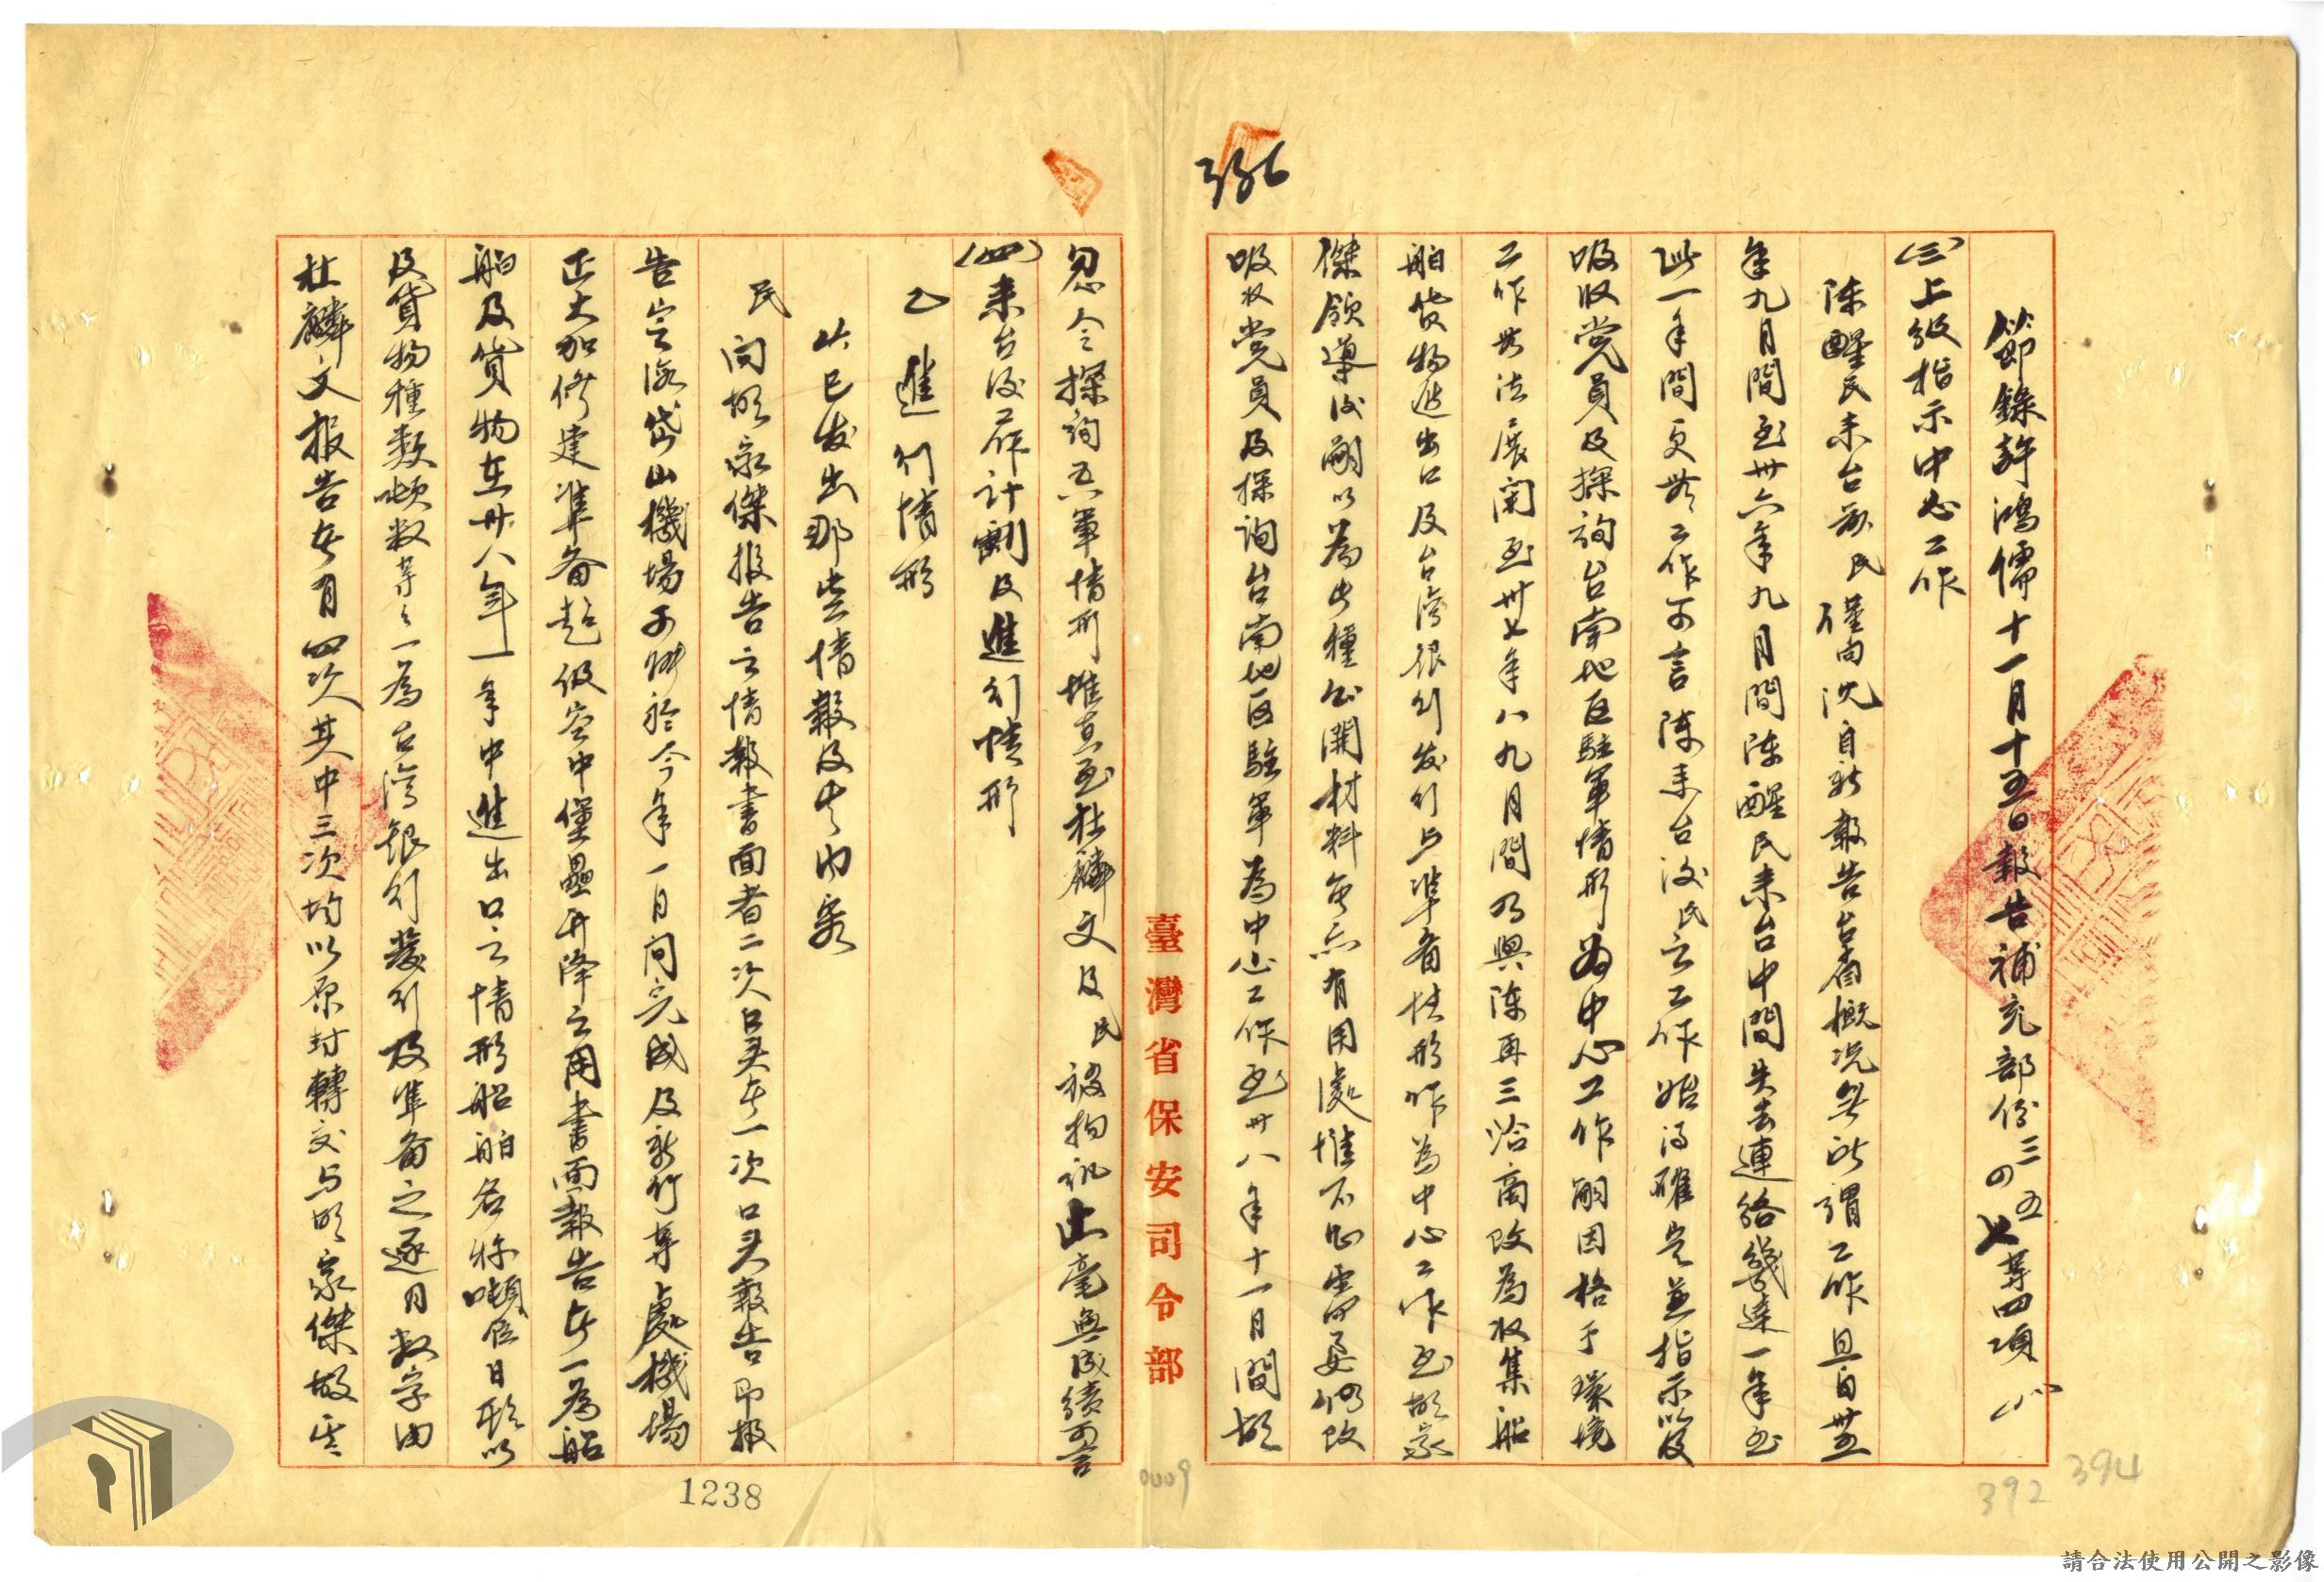 節錄許鴻儒十一月十五日報告補充部份三四五七等四項
(三)上級指示中心工作
陳醒民未台前民僅向沈自新報告台省概況無所謂工作且自卅五
年九月間至卅六年九月間陳醒民未台中間失去連絡幾達一年至
此一年間更無工作可言陳來台後民之工作始得確定並指示以及
吸收党員及探詢台南地區駐軍情形為中心工作嗣因格于環境
工作無法展開至卅七年八九月間乃與陳再三洽商改為收集船
舶貨物進出口及台湾銀行发行与準备情形作為中心工作至胡家
傑領導後嗣以為此種公開材料無有用處惟不
吸收党員及探詢台南地区駐軍為中心工作至卅八年十一月間胡
忽令探詢五軍情形惟直至杜麟文及民被拘訊止毫無成績可言
(四)來台後工作計劃及進行情形
乙 進行情形
已发出那些情報及其內容
民向胡家傑報告之情報書面者二次口头者一次口头報告即报
告岡山機場于今年一月间完成及新竹等處機場
正大加修建準备起空中堡壘升降之用書面報告者一為船
舶及貨物在卅八年一年中進出口之情形船舶名称噸位日期以
及貨物種類噸数等等一為台湾銀行發行及準備之逐月数字由
杜麟文报告每月四次其中三次均以原封轉交与胡家傑故
臺灣省保安司令部
1238
0009
392
394
請合法使用公開之影像